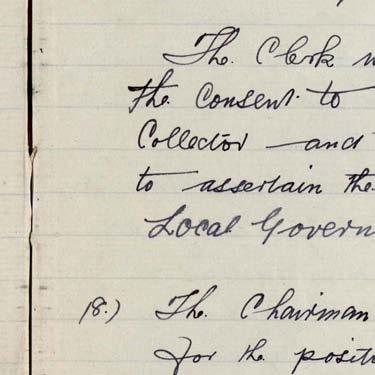 The Clerk
the consent to
Collector and
to assertain the
Local Govern
18.) The Chairman
for the posit